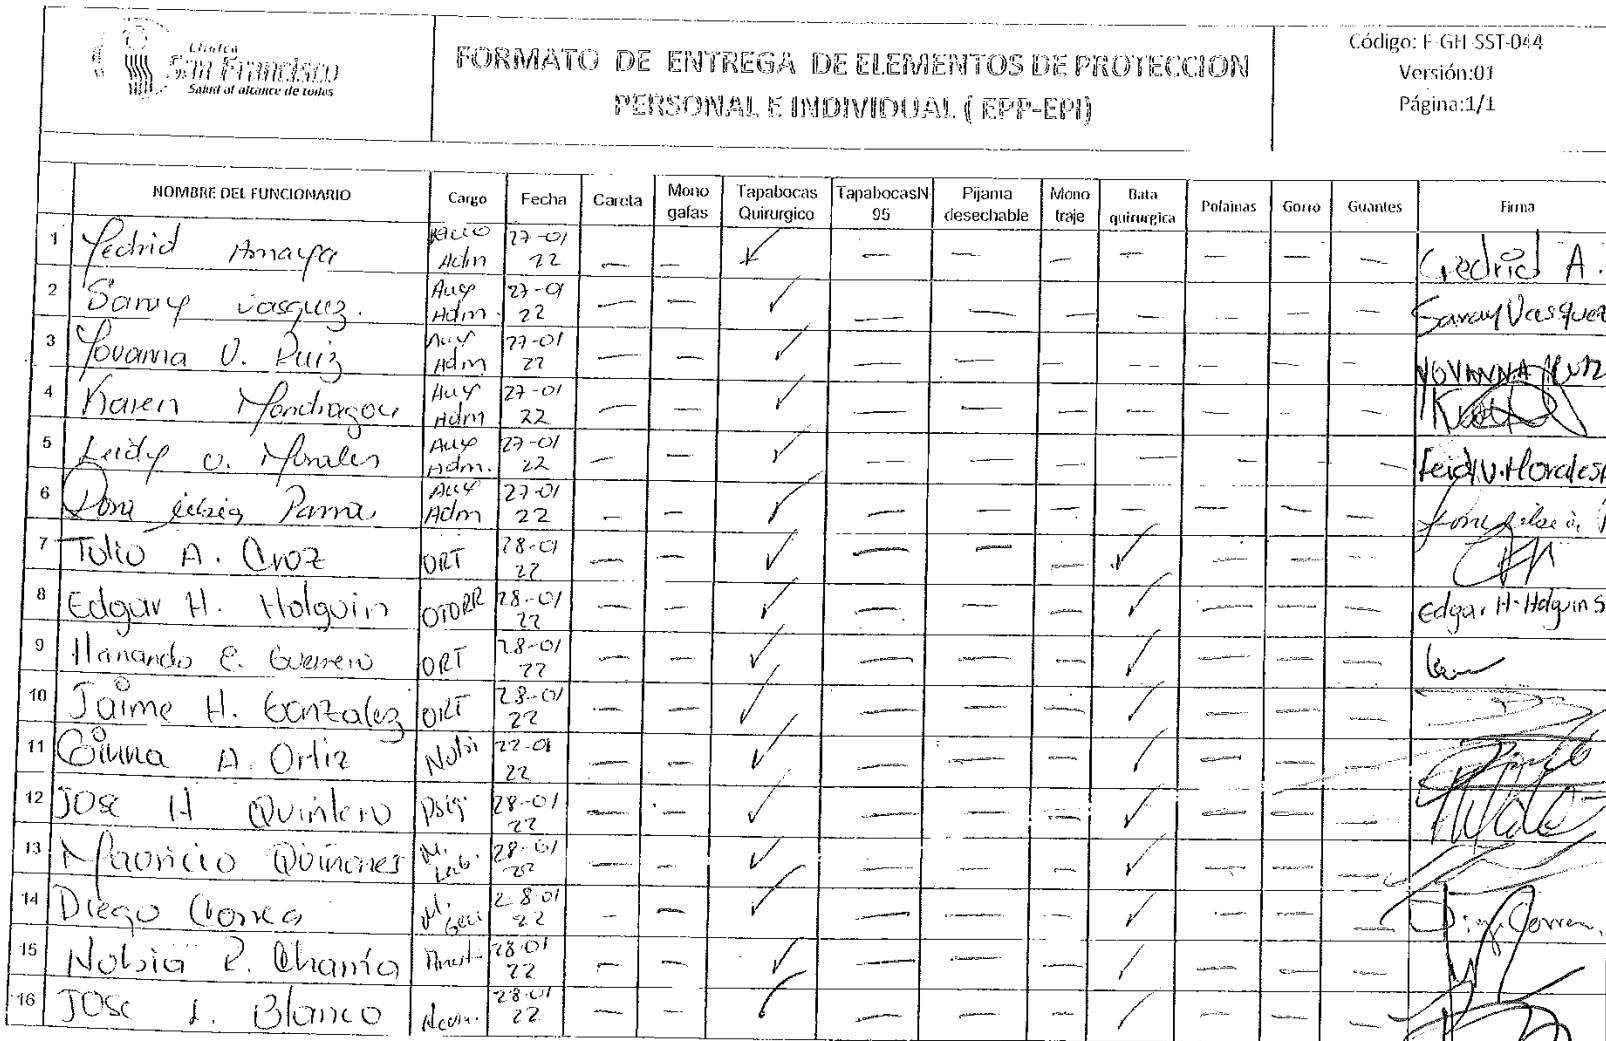 Clinica
San Francisco
Salud al alcance de todos
FORMATO DE ENTREGA DE ELEMENTOS DE PROTECCION
PERSONAL E INDIVIDUAL ( EPP-EPI)
Código: F-GH-SST-044
Versión:01
Página:1/1
NOMBRE DEL FUNCIONARIO Cargo Fecha Careta Mono gafas Tapabocas Quirurgico TapabocasN 95 Pijama desechable Mono traje Bata quirurgica Polainas Gorro Guantes Firma
1 Yedrid Amaya Adm 27-01 22 — — ✓ — — — — — — — Yedrid A.
2 Saray Vasquez. Aux Adm. 27-01 22 — — ✓ — — — — — — — Saray Vasquez
3 Yovanna V. Ruiz Aux Adm 27-01 22 — — ✓ — — — — — — — YOVANNA RUIZ
4 Karen Mondragon Aux Adm 27-01 22 — — ✓ — — — — — — —
5 Leidy v. Morales Aux Adm. 27-01 22 — — ✓ — — — — — — — Leidy V. Morales
6 Parra Aux Adm 27-01 22 — — ✓ — — — — — — —
7 Tulio A. Cruz ORT 28-01 22 — — ✓ — — — ✓ — — —
8 Edgar H. Holguin OTORR 28-01 22 — — ✓ — — — ✓ — — — Edgar H. Holguin S
9 E. Guerrero ORT 28-01 22 — — ✓ — — — ✓ — — —
10 Jaime H. Gonzalez ORT 28-01 22 — — ✓ — — — ✓ — — —
11 A. Ortiz Nutri 22-01 22 — — ✓ — — — ✓ — — —
12 Jose H Quintero Psig 28-01 22 — — ✓ — — — ✓ — — —
13 Mauricio Quiñones M. Lab. 28-01 22 — — ✓ — — — ✓ — — —
14 Diego Correa M. 28-01 22 — — ✓ — — — ✓ — — — Diego Correa
15 Nubia R. 28-01 22 — — ✓ — — — ✓ — — —
16 Jose L. Blanco 28-01 22 — — ✓ — — — ✓ — — —